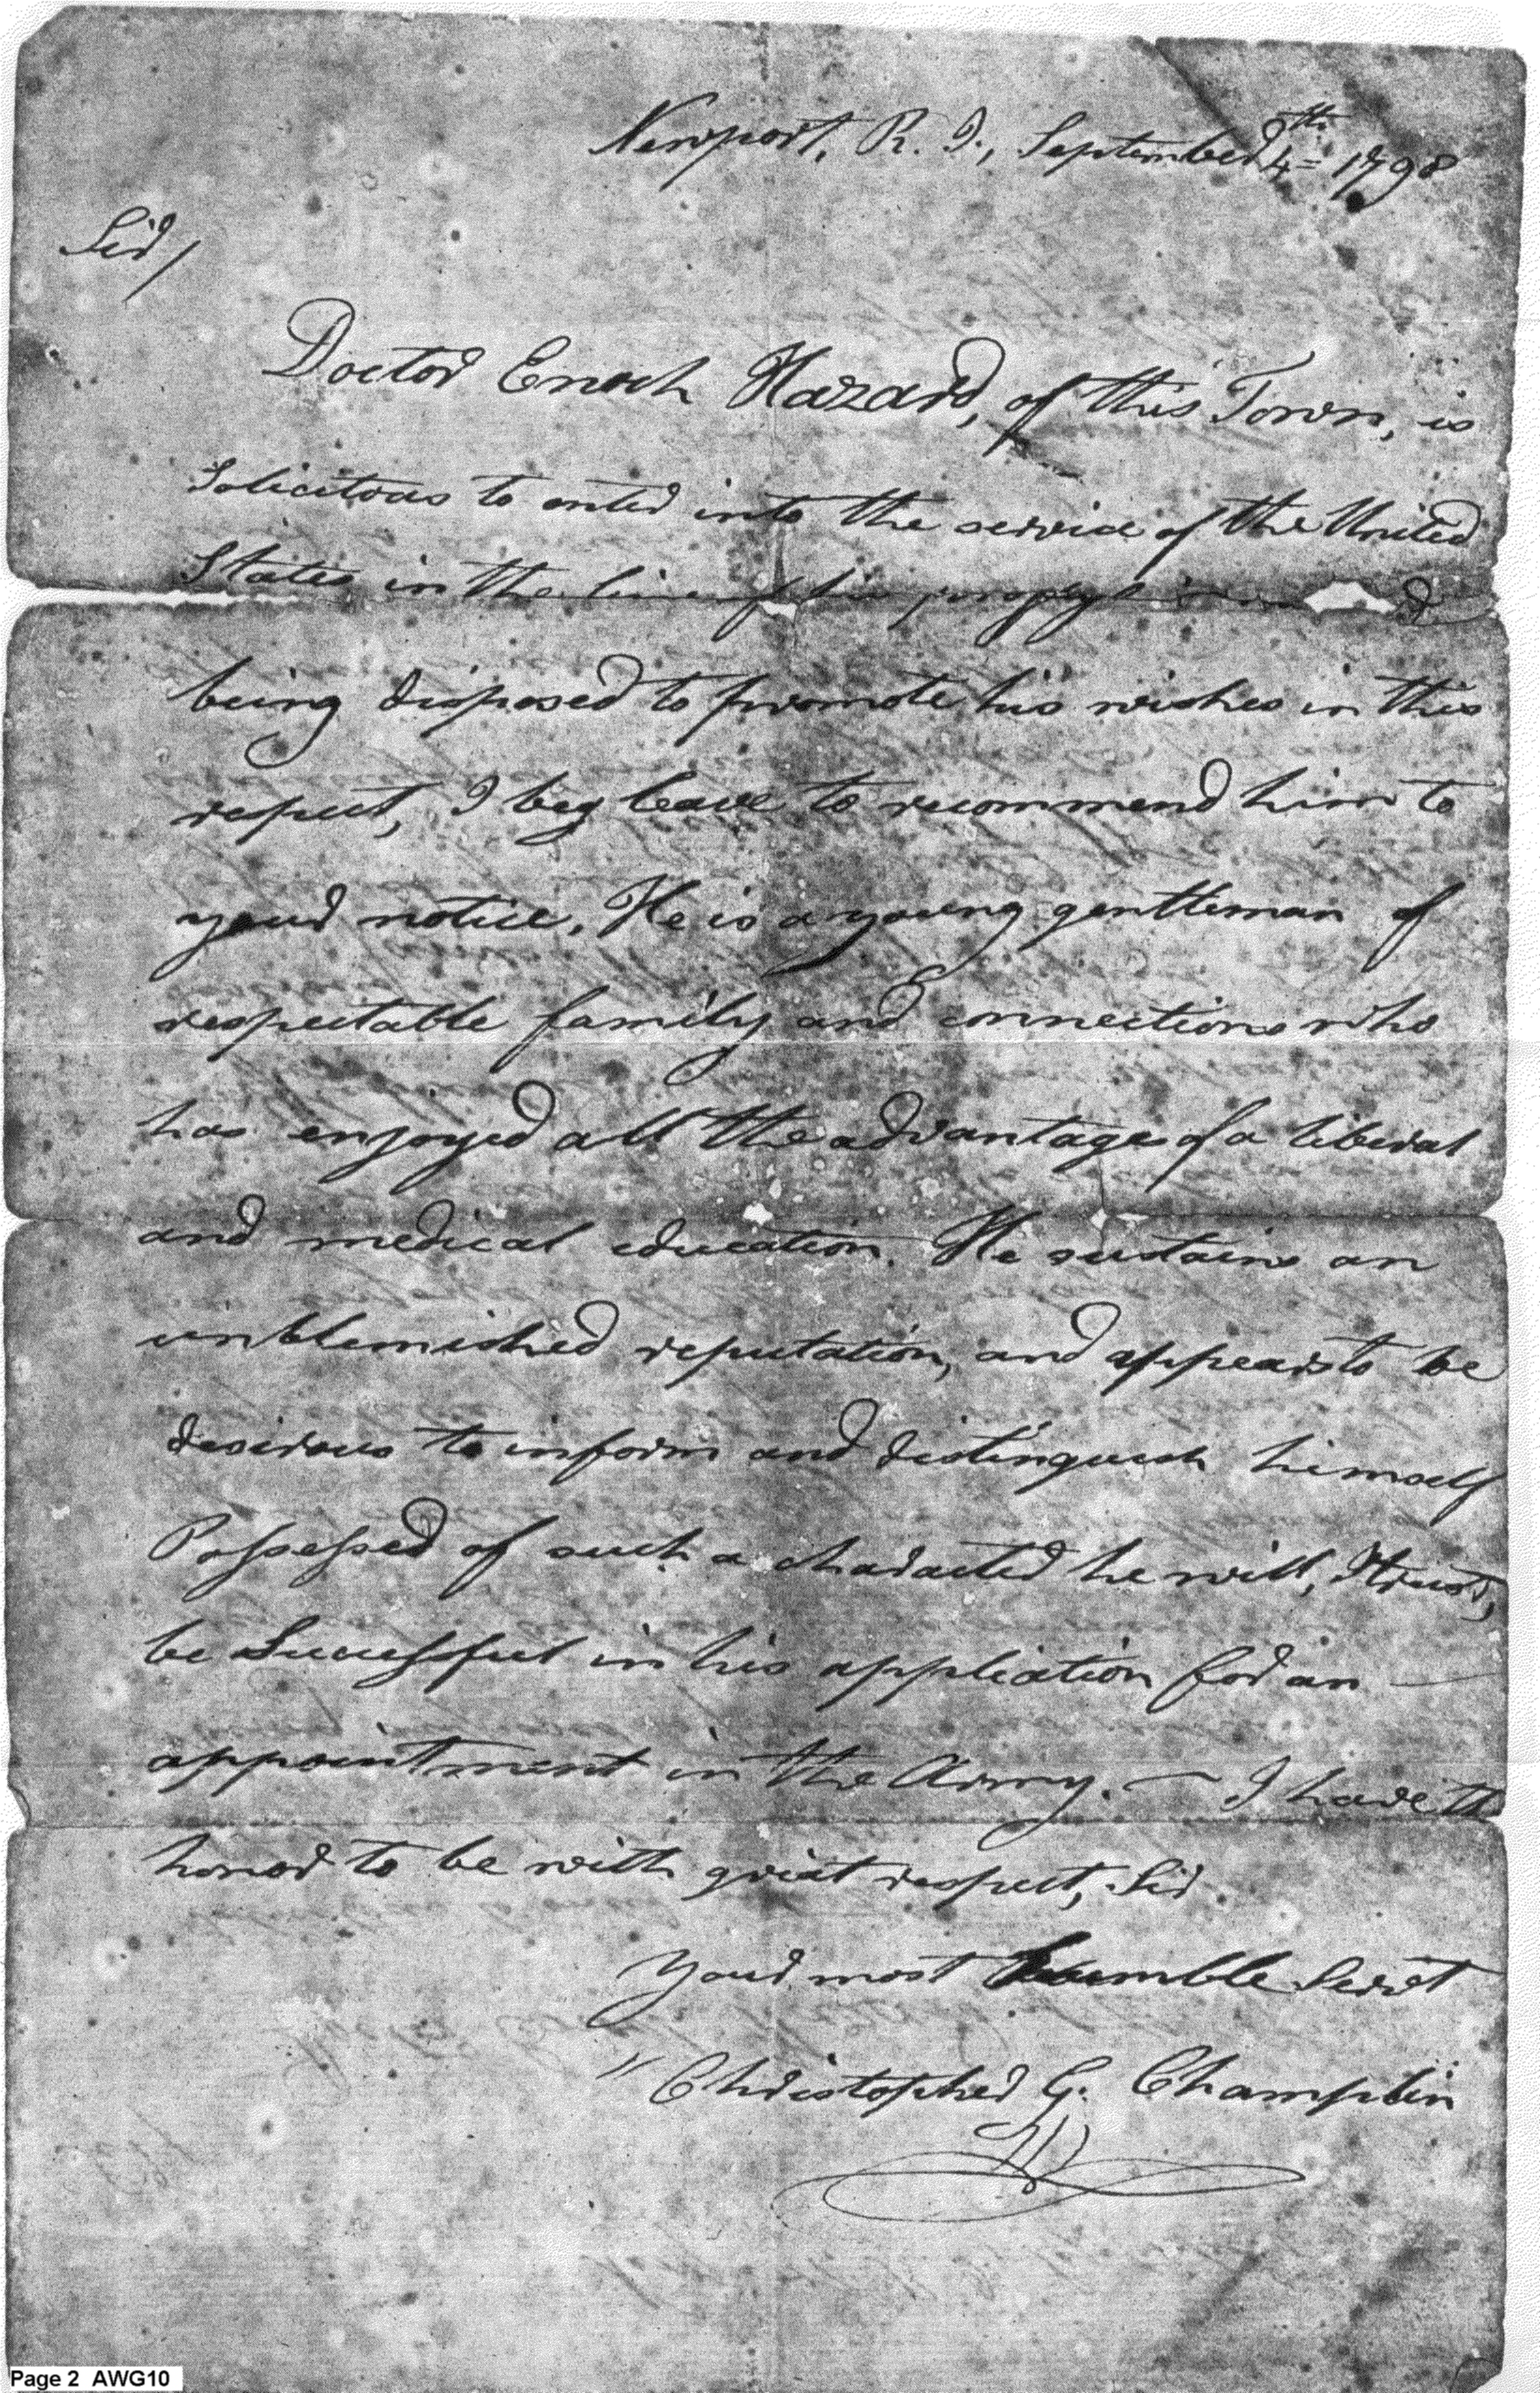 Newport, R. I., September 4th 1798
Sir/
Doctor Enoch Hazard, of this Town, is
Solicitous to enter into the service of the United
States in the line of his
being disposed to promote his wishes in this
respect, I beg leave to recommend him to
your notice. He is a young gentleman of
respectable family and connections who
has enjoyed all the advantages of a liberal
and medical education. He sustains an
unblemished reputation, and appears to be
desirous to inform and distinguish himself
Possessed of such a character he will, I trust,
be Successful in his application for an
appointment in the Army. — I have th
honor to be with great respect, Sir
Your most humble Servt
" Christopher G. Champlin
Page 2 AWG10